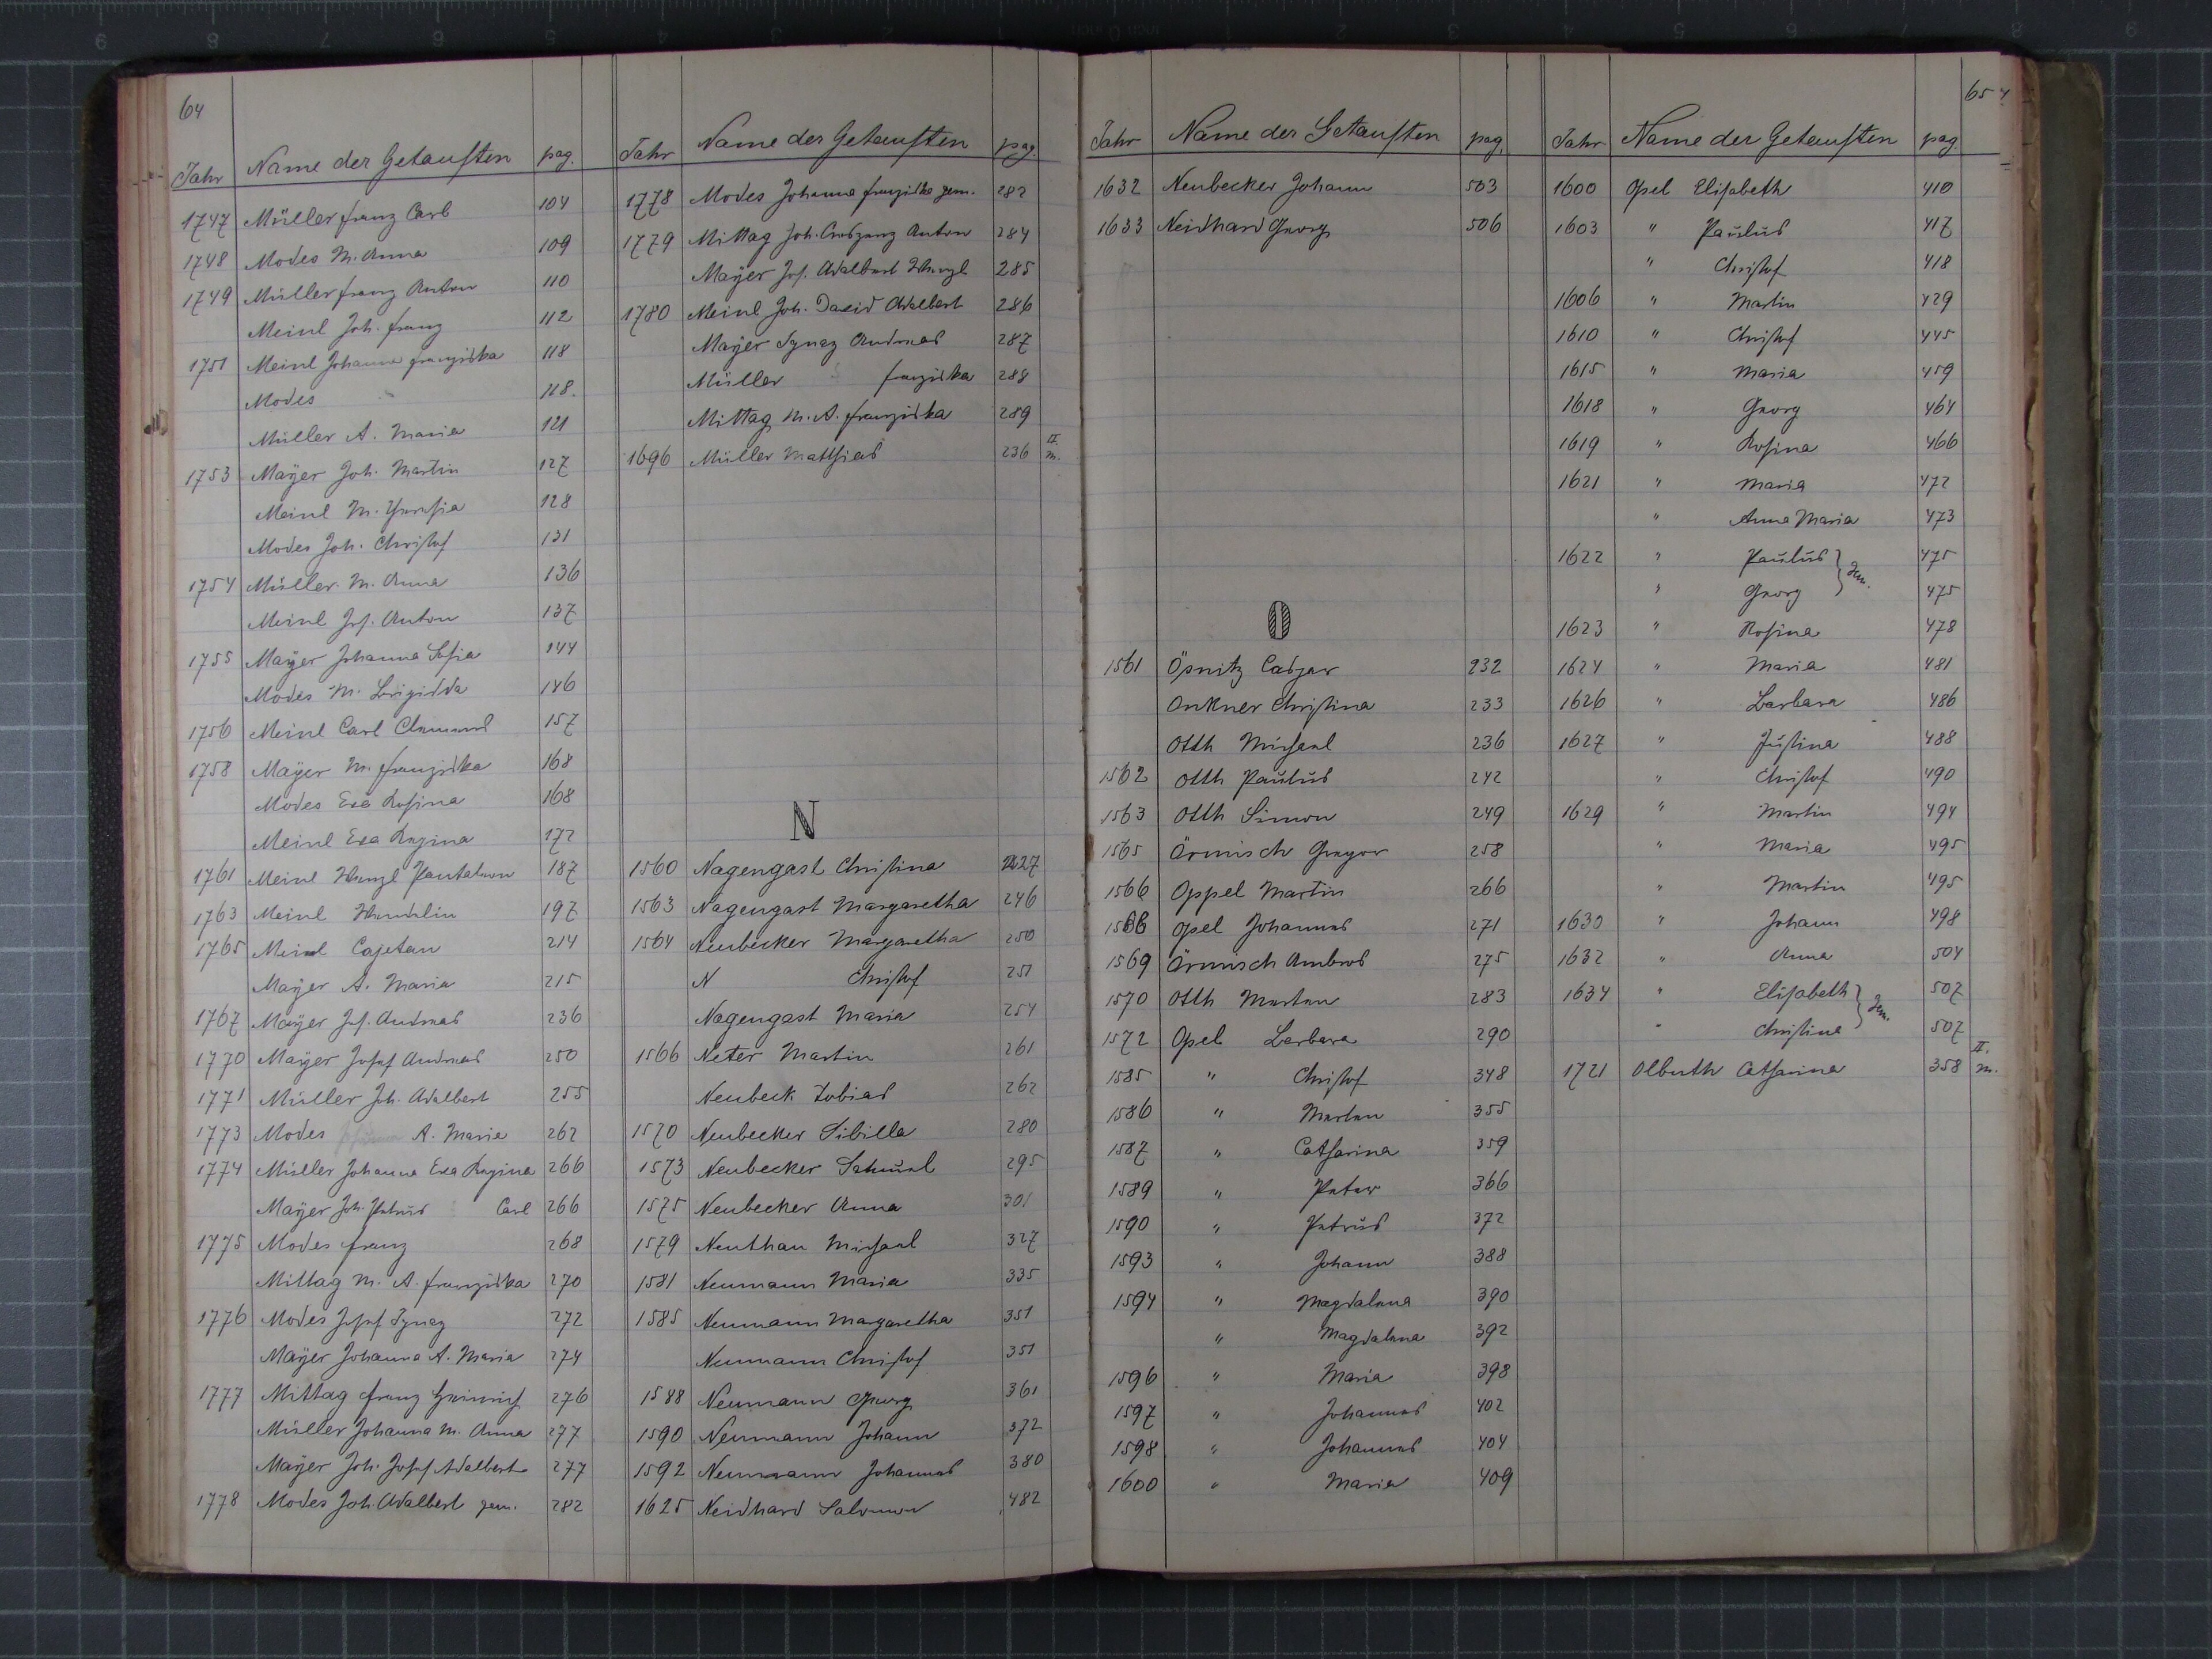 64
Jahr Name der Getauften pag.
1747 Müller Franz Carl 104
1748 Modes M. Anna 109
1749 Müller Franz Anton 110
Meinl Joh. Franz 112
1751 Meinl Johanna Franziska 118
Modes 118.
Müller A. Maria 121
1753 Mayer Joh. Martin 127
Meinl M. Theresia 128
Modes Joh. Christof 131
1754 Müller M. Anna 136
Meinl Jos. Anton 137
1755 Mayer Johanna Sofia 144
Modes M. Brigidda 146
1756 Meinl Carl Clemens 157
1758 Mayer M. Franziska 168
Modes Eva Rosina 168
Meinl Eva Regina 172
1761 Meinl Wenzl Pantaleon 187
1763 Meinl Wendelin 197
1765 Meinl Cajetan 214
Mayer A. Maria 215
1767 Mayer Jos. Andreas 236
1770 Mayer Josef Andreas 250
1771 Müller Joh. Adalbert 255
1773 Modes A. Maria 262
1774 Müller Johanna Eva Regina 266
Mayer Joh. Petrus Carl 266
1775 Modes Franz 268
Mittag M. A. Franziska 270
1776 Modes Josef Ignaz 272
Mayer Johanna A. Maria 274
1777 Mittag Franz Heinrich 276
Müller Johanna M. Anna 277
Mayer Joh. Josef Adalbert 277
1778 Modes Joh. Adalbert gem. 282
Jahr Name der Getauften pag.
1778 Modes Johanna Franziska gem. 282
1779 Mittag Joh. Anton 284
Mayer Jos. Adalbert Wenzl 285
1780 Meinl Joh. David Adalbert 286
Mayer Ignaz Andreas 287
Müller Franziska 288
Mittag M. A. Franziska 289
1696 Müller Mathias 236 II. M.
N
1560 Nagengast Christina 227
1563 Nagengast Margaretha 246
1564 Neubecker Margaretha 250
N Christof 251
Nagengast Maria 254
1566 Neter Martin 261
Neubeck Tobias 262
1570 Neubecker Sibilla 280
1573 Neubecker Samuel 295
1575 Neubecker Anna 301
1579 Neuthan Michael 327
1581 Neumann Maria 335
1585 Neumann Margaretha 351
Neumann Christof 351
1588 Neumann Georg 361
1590 Neumann Johann 372
1592 Neumann Johannes 380
1625 Neidhard Salomon 482
Jahr Name der Getauften pag.
1632 Neubecker Johann 503
1633 Neidhard Georg 506
O
1561 Öpnitz Caspar 232
Onkner Christina 233
Otth Michael 236
1562 Otth Paulus 242
1563 Otth Simon 249
1565 Örmisch Gregor 258
1566 Oppel Martin 266
1568 Opel Johannes 271
1569 Örmisch Ambros 275
1570 Otth Merten 283
1572 Opel Barbara 290
1585 " Christof 348
1586 " Merten 355
1587 " Catharina 359
1589 " Peter 366
1590 " Petrus 372
1593 " Johann 388
1594 " Magdalena 390
" Magdalena 392
1596 " Maria 398
1597 " Johannes 402
1598 " Johannes 404
1600 " Maria 409
65
Jahr Name der Getauften pag
1600 Opel Elisabeth 410
1603 " Paulus 417
" Christof 418
1606 " Martin 429
1610 " Christof 445
1615 " Maria 459
1618 " Georg 464
1619 " Rosina 466
1621 " Maria 472
" Anna Maria 473
1622 " Paulus } gem. 475
" Georg 475
1623 " Rosina 478
1624 " Maria 481
1626 " Barbara 486
1627 " Justina 488
" Christof 490
1629 " Martin 494
" Maria 495
" Martin 495
1630 " Johann 498
1632 " Anna 504
1634 " Elisabeth } gem. 507
" Christina 507
1721 Olbuth Catharina 358 II. M.